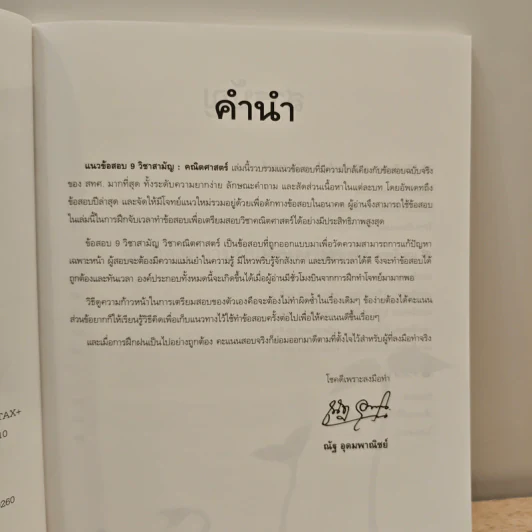 คำนำ
แนวข้อสอบ 9 วิชาสามัญ : คณิตศาสตร์ เล่มนี้รวบรวมแนวข้อสอบที่มีความใกล้เคียงกับข้อสอบฉบับจริง
ของ สทศ. มากที่สุด ทั้งระดับความยากง่าย ลักษณะคำถาม และสัดส่วนเนื้อหาในแต่ละบท โดยอัพเดทถึง
ข้อสอบปีล่าสุด และจัดให้มีโจทย์แนวใหม่รวมอยู่ด้วยเพื่อดักทางข้อสอบในอนาคต ผู้อ่านจึงสามารถใช้ข้อสอบ
ในเล่มนี้ในการฝึกจับเวลาทำข้อสอบเพื่อเตรียมสอบวิชาคณิตศาสตร์ได้อย่างมีประสิทธิภาพสูงสุด
ข้อสอบ 9 วิชาสามัญ วิชาคณิตศาสตร์ เป็นข้อสอบที่ถูกออกแบบมาเพื่อวัดความสามารถการแก้ปัญหา
เฉพาะหน้า ผู้สอบจะต้องมีความแม่นยำในความรู้ มีไหวพริบรู้จักสังเกต และบริหารเวลาได้ดี จึงจะทำข้อสอบได้
ถูกต้องและทันเวลา องค์ประกอบทั้งหมดนี้จะเกิดขึ้นได้เมื่อผู้อ่านมีชั่วโมงบินจากการฝึกทำโจทย์มามากพอ
วิธีดูความก้าวหน้าในการเตรียมสอบของตัวเองคือจะต้องไม่ทำผิดซ้ำในเรื่องเดิมๆ ข้อง่ายต้องได้คะแนน
ส่วนข้อยากก็ให้เรียนรู้วิธีคิดเพื่อเก็บแนวทางไว้ใช้ทำข้อสอบครั้งต่อไปเพื่อให้คะแนนดีขึ้นเรื่อยๆ
และเมื่อการฝึกฝนเป็นไปอย่างถูกต้อง คะแนนสอบจริงก็ย่อมออกมาดีตามที่ตั้งใจไว้สำหรับผู้ที่ลงมือทำจริง
โชคดีเพราะลงมือทำ
ณัฐ อุดมพาณิชย์
TAX+
10
260